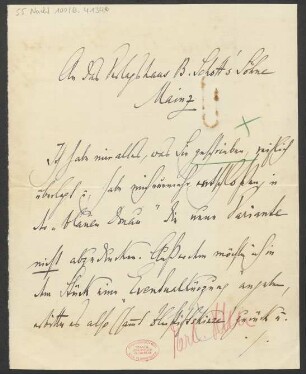 55 Nachl 100/B, 41356
An das Verlagshaus B. Schott's Söhne
Mainz
Ich habe mir alles, was Sie geschrieben, reiflich
überlegt u. habe mich nunmehr entschlossen, in
der "blauen Donau" die neue Variante
nicht abzudrucken. Außerdem möchte ich in
dem Stück eine Eventualkürzung angeben,
erbitte es also (samt Bleistiftskizze) zurück u.